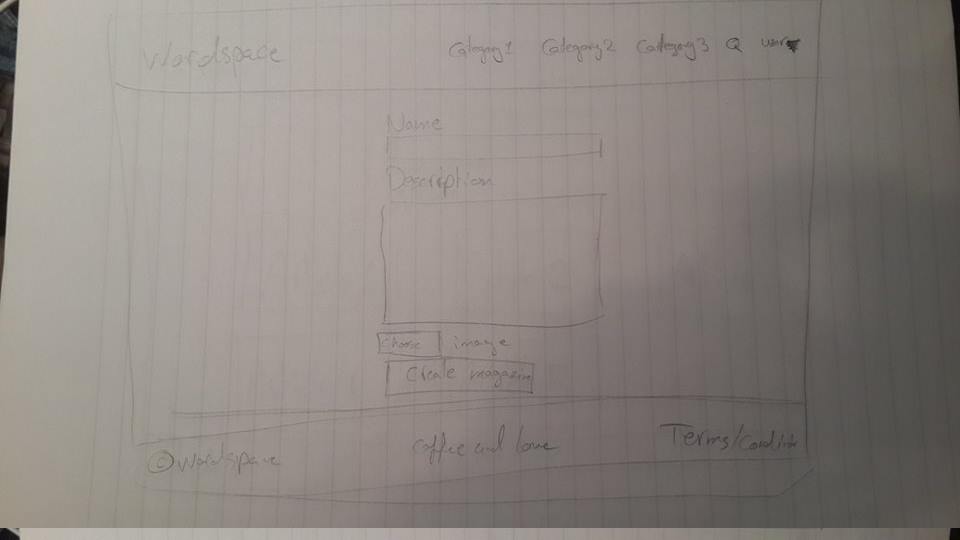 Wordspace Category1 Category2 Category3 Q user
Name
Description
Choose image
Create magazine
©Wordspace coffee and love Terms/